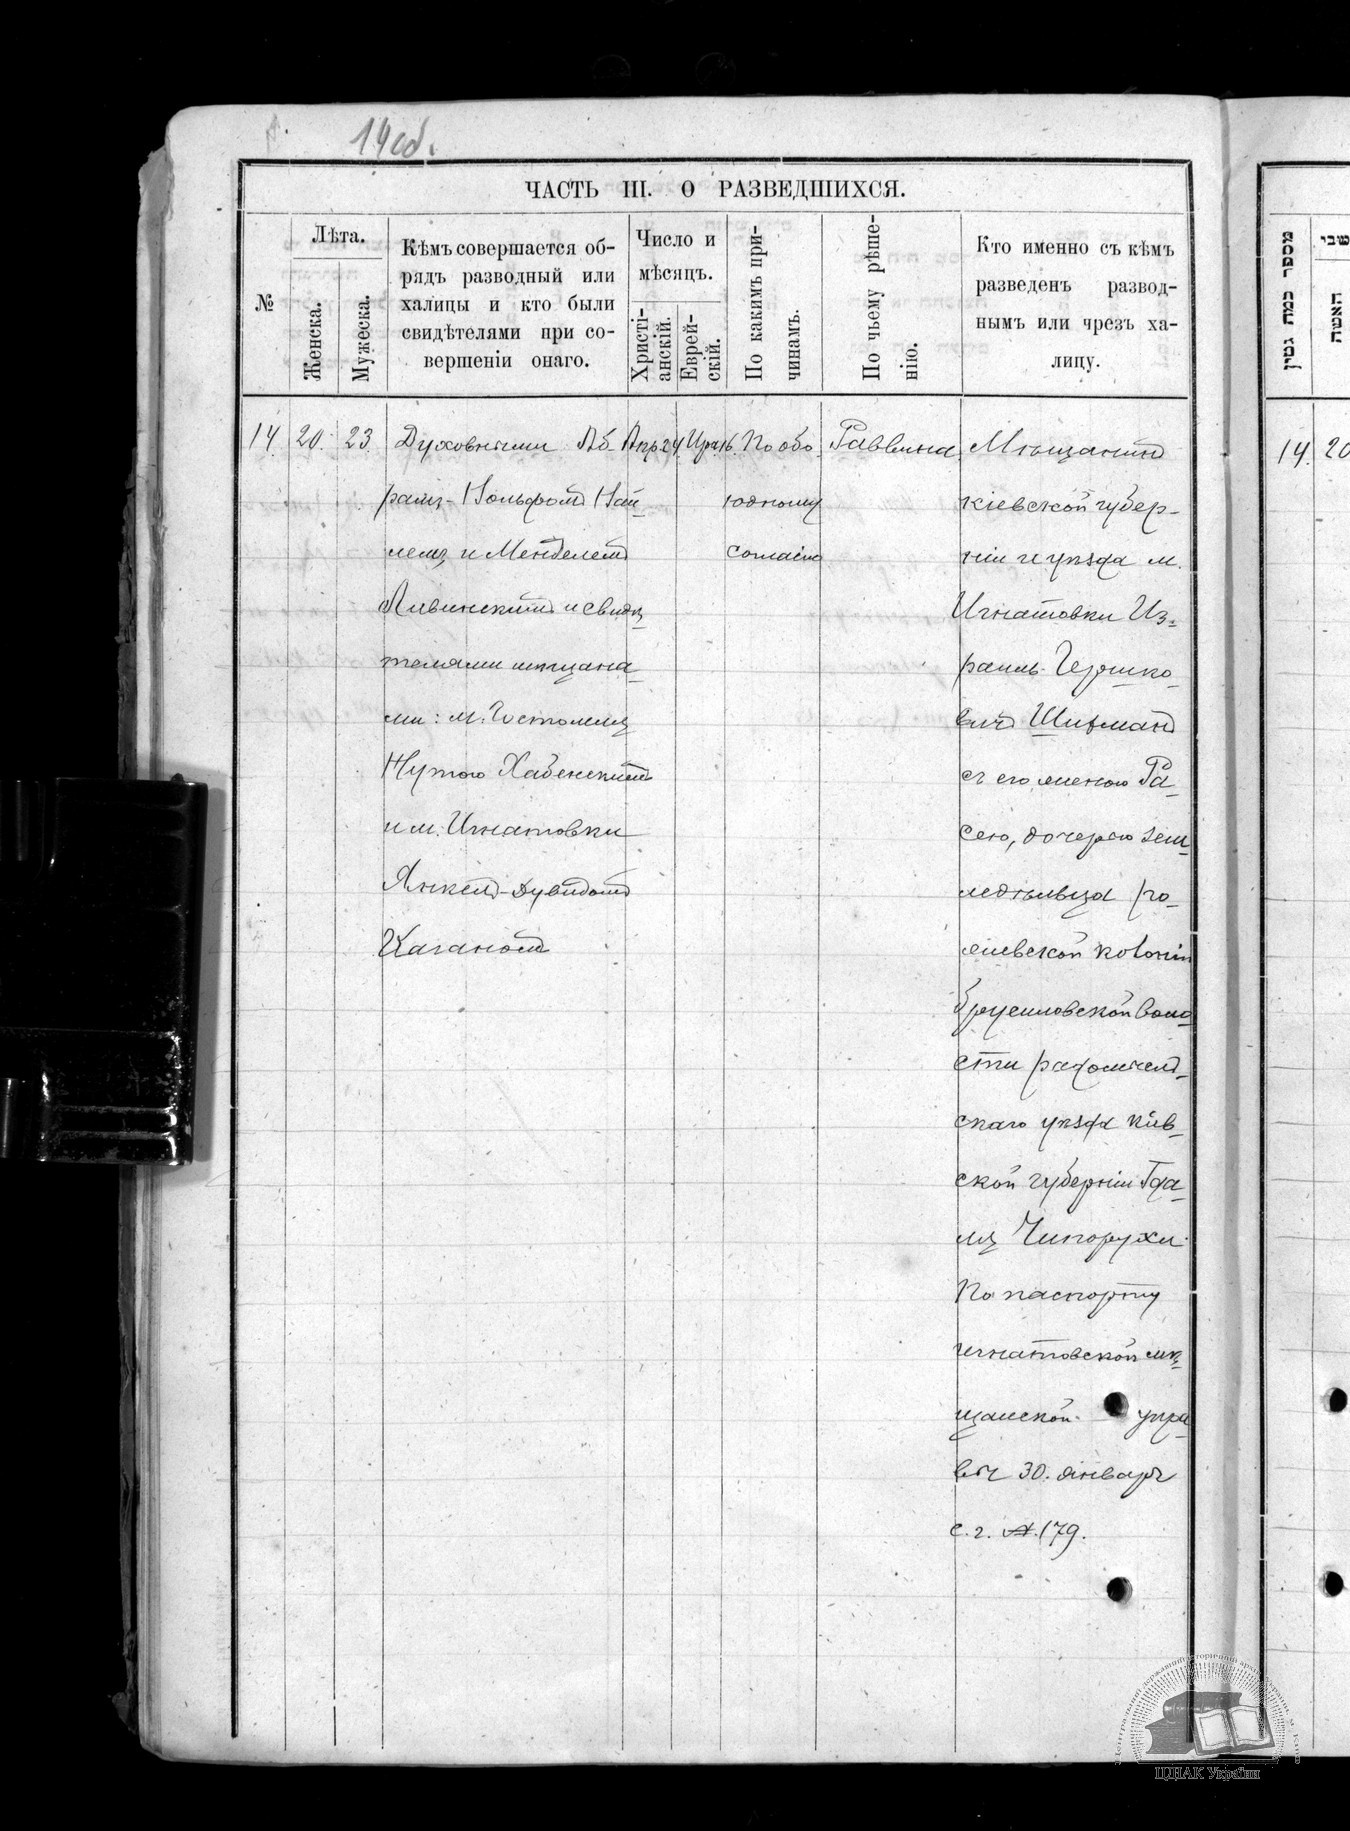 14 об.
ЧАСТЬ III. О РАЗВЕДШИХСЯ.
№
Лѣта.
Женска.
Мужеска.
Кѣмъ совершается об-
рядъ разводный или
халицы и кто были
свидѣтелями при со-
вершеніи онаго.
Число и
мѣсяцъ.
Христі-
анскій.
Еврей-
скій.
По какимъ при-
чинамъ.
По чьему рѣше-
нію.
Кто именно съ кѣмъ
разведенъ развод-
нымъ или чрезъ ха-
лицу.
14. 20. 23
Духовными Аб-
рамъ-Вольфомъ
лемъ и Менделемъ
Ливинскимъ и свидѣ-
телями мѣщана-
ми: м. Гостомля
Нутою Хабенскимъ
и м. Игнатовки
Янкель-Дувидомъ
Каганомъ
Апр. 24.
16.
По обо-
юдному
согласію
Раввина
Мѣщанинъ
кіевской губер-
ніи и уѣзда м.
Игнатовки Из-
раиль Гершко-
вичъ Шифманъ
съ его женою Ра-
сею, дочерью зем-
ледѣльца ро-
жевской колоніи
брусиловской воло-
сти радомысль-
скаго уѣзда кіев-
ской губерніи Гда-
ля Чипорухи.
По паспорту
игнатовской мѣ-
щанской упра-
вы 30. января
с. г. №. 179.
מספר כמה גטין
שני
האשה
14. 20
ЦДІАК України